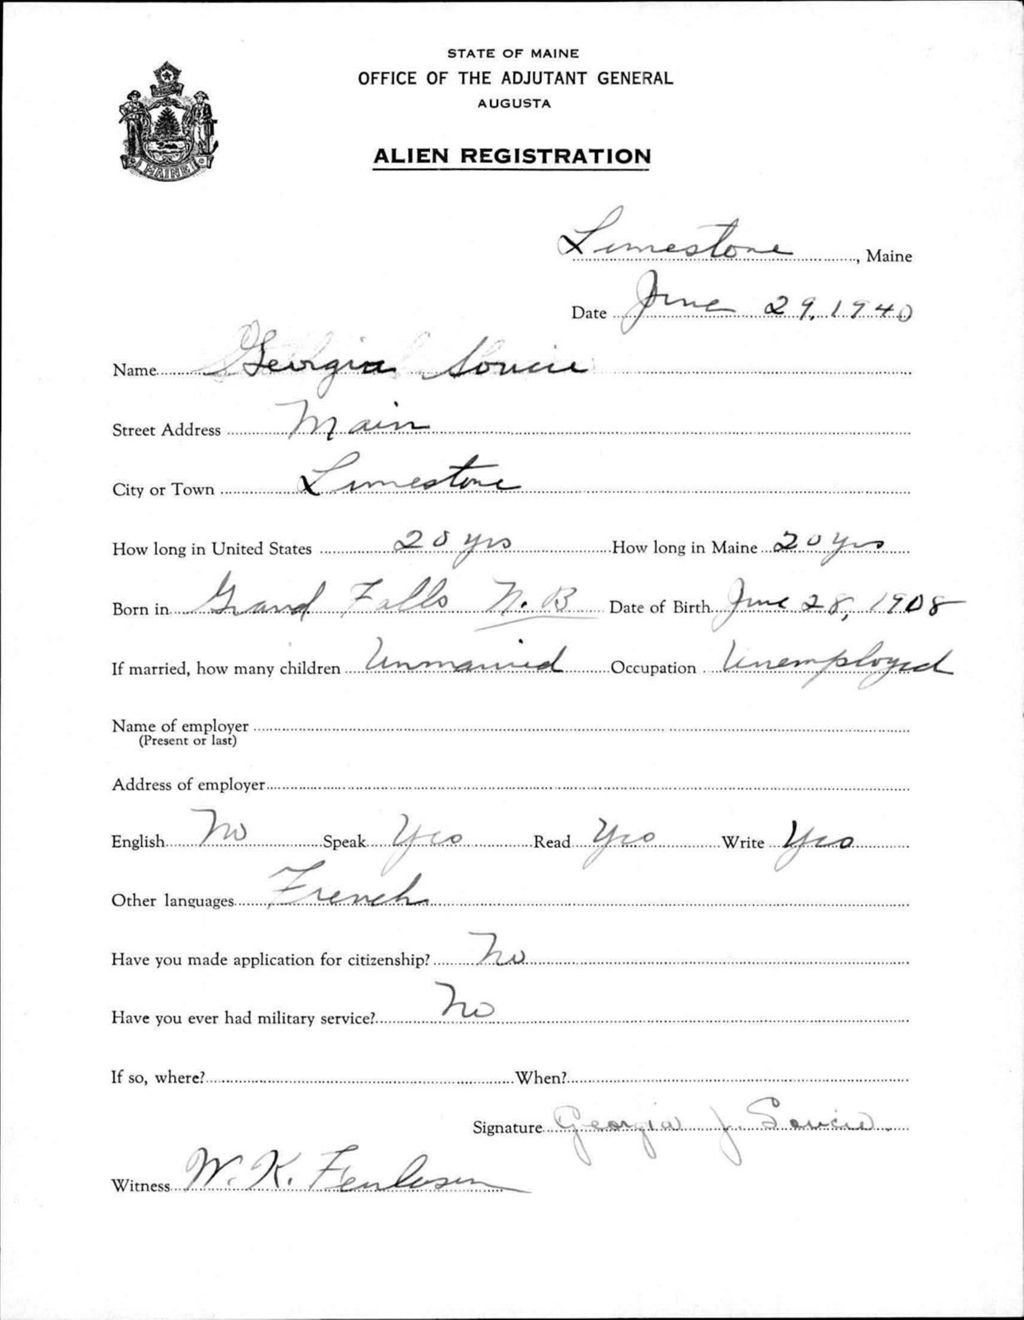 STATE OF MAINE
OFFICE OF THE ADJUTANT GENERAL
AUGUSTA
ALIEN REGISTRATION
MAINE
Limestone, Maine
Date June 29, 1940
Name Georgia Soucie
Street Address Main
City or Town Limestone
How long in United States 20 yrs How long in Maine 20 yrs
Born in Grand Falls N. B Date of Birth June 28, 1908
If married, how many children Unmarried Occupation Unemployed
Name of employer
(Present or last)
Address of employer
English No Speak Yes Read Yes Write Yes
Other languages French
Have you made application for citizenship? No
Have you ever had military service? No
If so, where? When?
Signature Georgia J. Soucie.
Witness W. K.